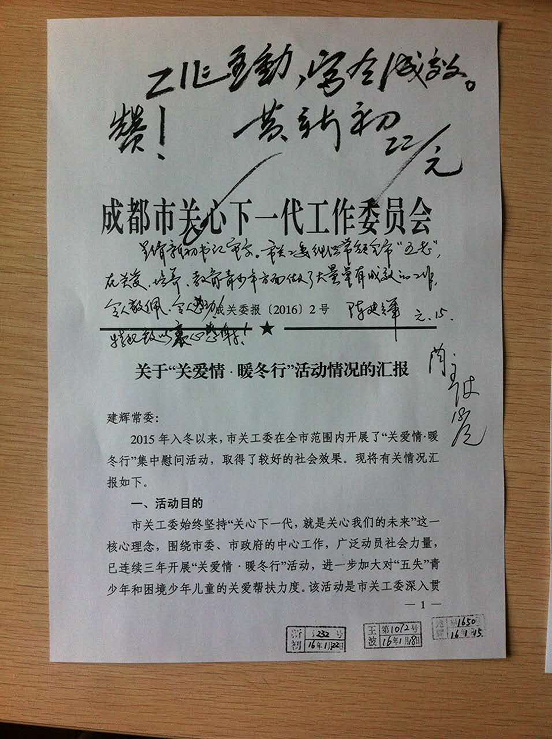 工作主动，富含成效。
赞！ 黄新初 22/元
成都市关心下一代工作委员会
呈请新初书记审示。市关工委组织带领全市“五老”，
在关爱、培养、教育青少年方面做了大量卓有成效的工作，
令人敬佩、令人感动
成关委报〔2016〕2号 陈建辉 元.15.
特致以衷心感谢！
关于“关爱情·暖冬行”活动情况的汇报
建辉常委：
2015年入冬以来，市关工委在全市范围内开展了“关爱情·暖
冬行”集中慰问活动，取得了较好的社会效果。现将有关情况汇
报如下。
一、活动目的
市关工委始终坚持“关心下一代，就是关心我们的未来”这一
核心理念，围绕市委、市政府的中心工作，广泛动员社会力量，
已连续三年开展“关爱情·暖冬行”活动，进一步加大对“五失”青
少年和困境少年儿童的关爱帮扶力度。该活动是市关工委深入贯
— 1 —
新初 232号 16年1月22日
王波 第1012号 16年1月18日
1650 16年1月15